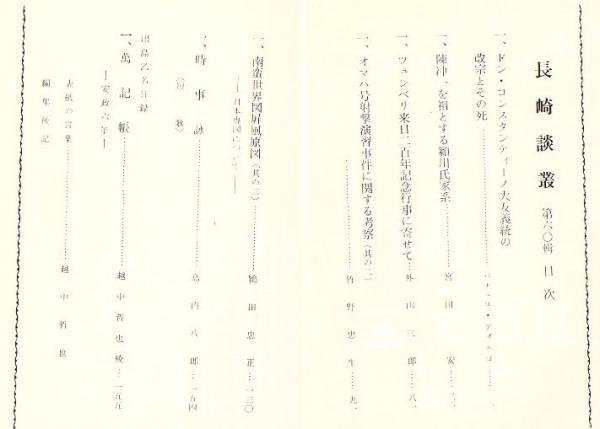 長崎談叢 第六〇輯 目次
一、ドン・コンスタンティーノ大友義統の
改宗とその死……パチェコ・ディエゴ……一
一、陳冲一を祖とする頴川氏家系……宮田 安……
一、ツュンベリ来日二百年記念行事に寄せて…外山三郎……八
一、オマハ号射撃演習事件に関する考察(其の二)……竹野忠生……九
一、南蛮世界図屏風原図(其の三)……鶴田忠正…一三〇
一、時事詠……島内八郎…一五四
出島乙名日録
一、萬記帳……越中哲也稜…一五五
―安政六年―
表紙の言葉……越中哲也
編集後記